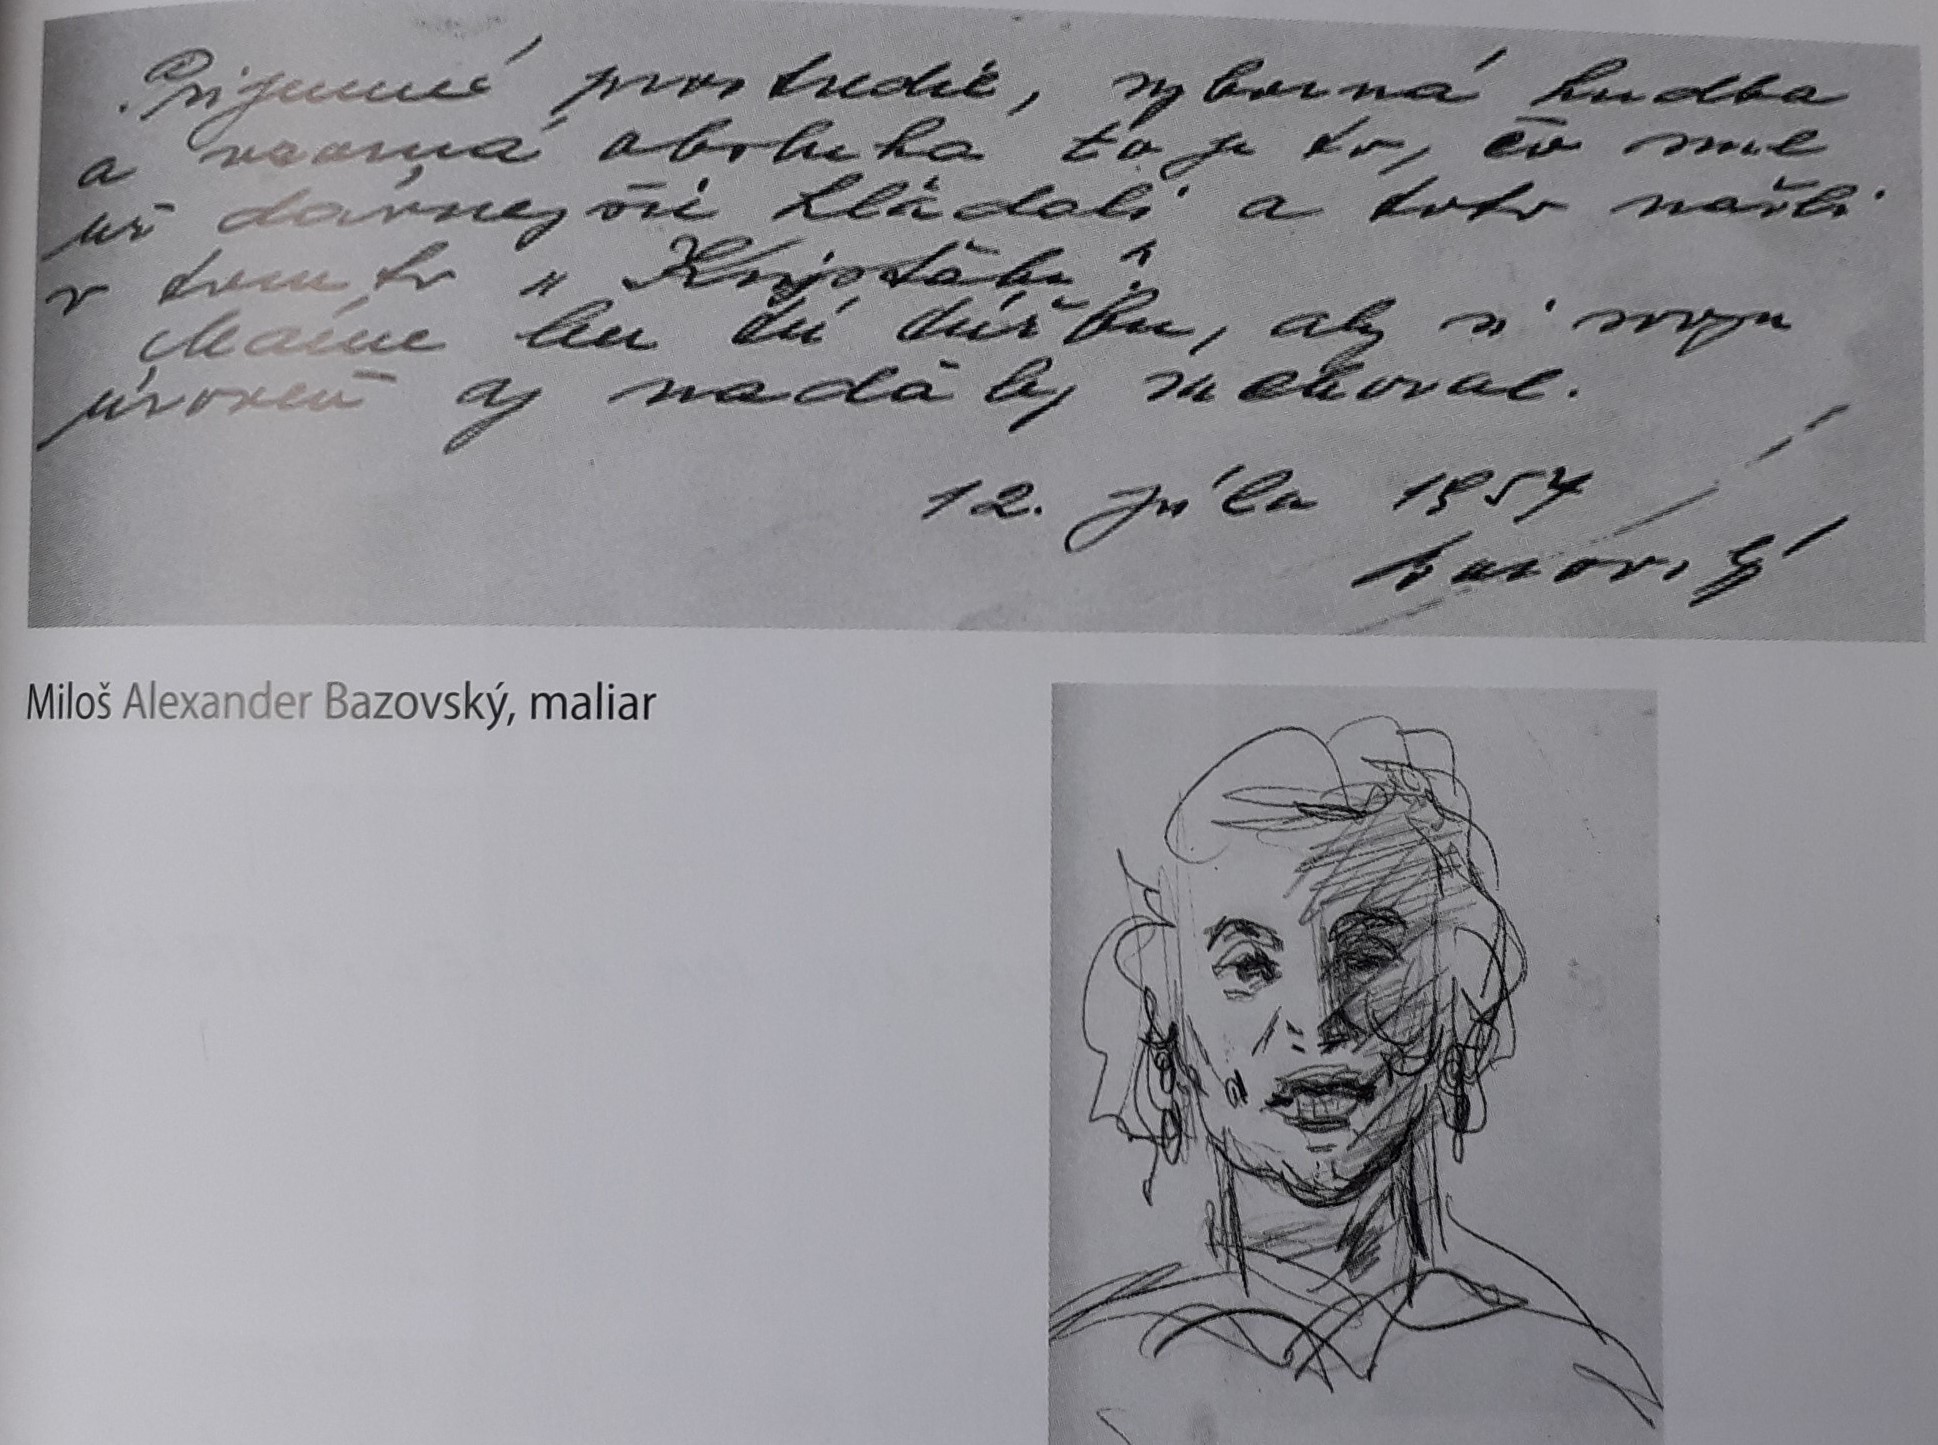 Príjemné prostredie, výborná hudba
a vzorná obsluha to je to, čo sme
už dávnejšie hľadali a toto našli
v tomto „Kryštálu".
Máme len tú túžbu, aby si svoju
úroveň aj naďalej zachoval.
12. júla 1954
Bazovský
Miloš Alexander Bazovský, maliar